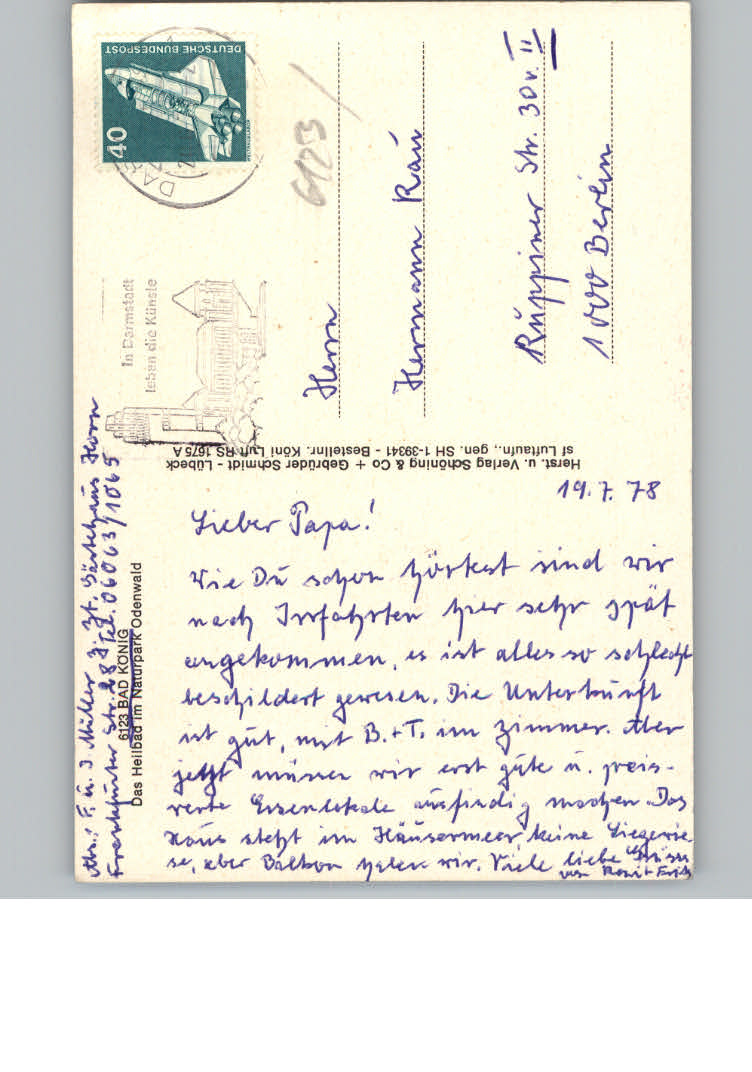 DEUTSCHE BUNDESPOST
40
6123
In Darmstadt
leben die Künste
Herrn
Hermann Rau
Ruppiner Str. 30 v. II
1000 Berlin
Herst. u. Verlag Schöning & Co + Gebrüder Schmidt - Lübeck
sf Luftaufn., gen. SH 1-39341 - Bestellnr. Köni Luft RS 1675 A
Abs.: F. u. I. Müller z. Zt. Gästehaus Horn
Frankfurter Str. 28 Tel. 06063/1065
6123 BAD KÖNIG
Das Heilbad im Naturpark Odenwald
19.7.78
Lieber Papa!
Wie Du schon hörtest sind wir
nach Irrfahrten hier sehr spät
angekommen, es ist alles so schlecht
beschildert gewesen. Die Unterkunft
ist gut, mit B.+T. im Zimmer. Aber
jetzt müssen wir erst gute u. preis-
werte Essenlokale ausfindig machen. Das
Haus steht im Häusermeer, keine Liegewie-
se, aber Balkon haben wir. Viele liebe Grüsse
von